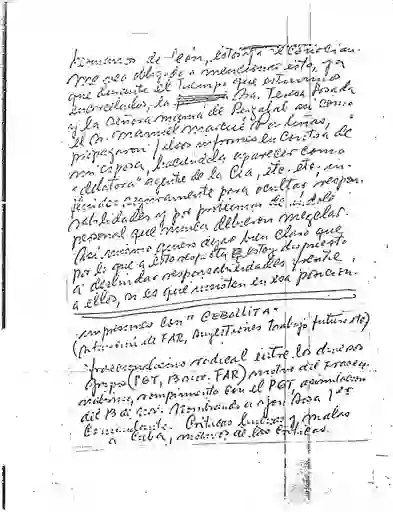 Hermanos de León, estos ya se conocían.
me veo obligado a mencionar esto, ya
que durante el tiempo que estuvimos
encarcelados, la Sra. Teresa Posada
y la Señora mamá de así como
el Sr. Manuel
propagaron falsos informes en contra de
mi esposa, haciéndola aparecer como
"delatora" agente de la Cia, etc. etc. in-
seguramente para ocultar respon-
sabilidades y por problemas de índole
personal que nunca debieron mezclar.
Así mismo quiero dejar bien claro que
por lo que a esto respecta estoy dispuesto
a deslindar responsabilidades frente
a ellos, si es que insisten en esa posición.
impresiones con "CEBOLLITA"
(de FAR, sugestiones trabajo futuro etc)
radical entre los diversos
grupos (PGT, 13 nov. FAR) motivo del fracaso
rompimiento con el PGT
del 13 de nov. Nombrando a Yon Sosa 1er
Comandante. Críticas buenas y malas
a Cuba, motivos de las críticas.